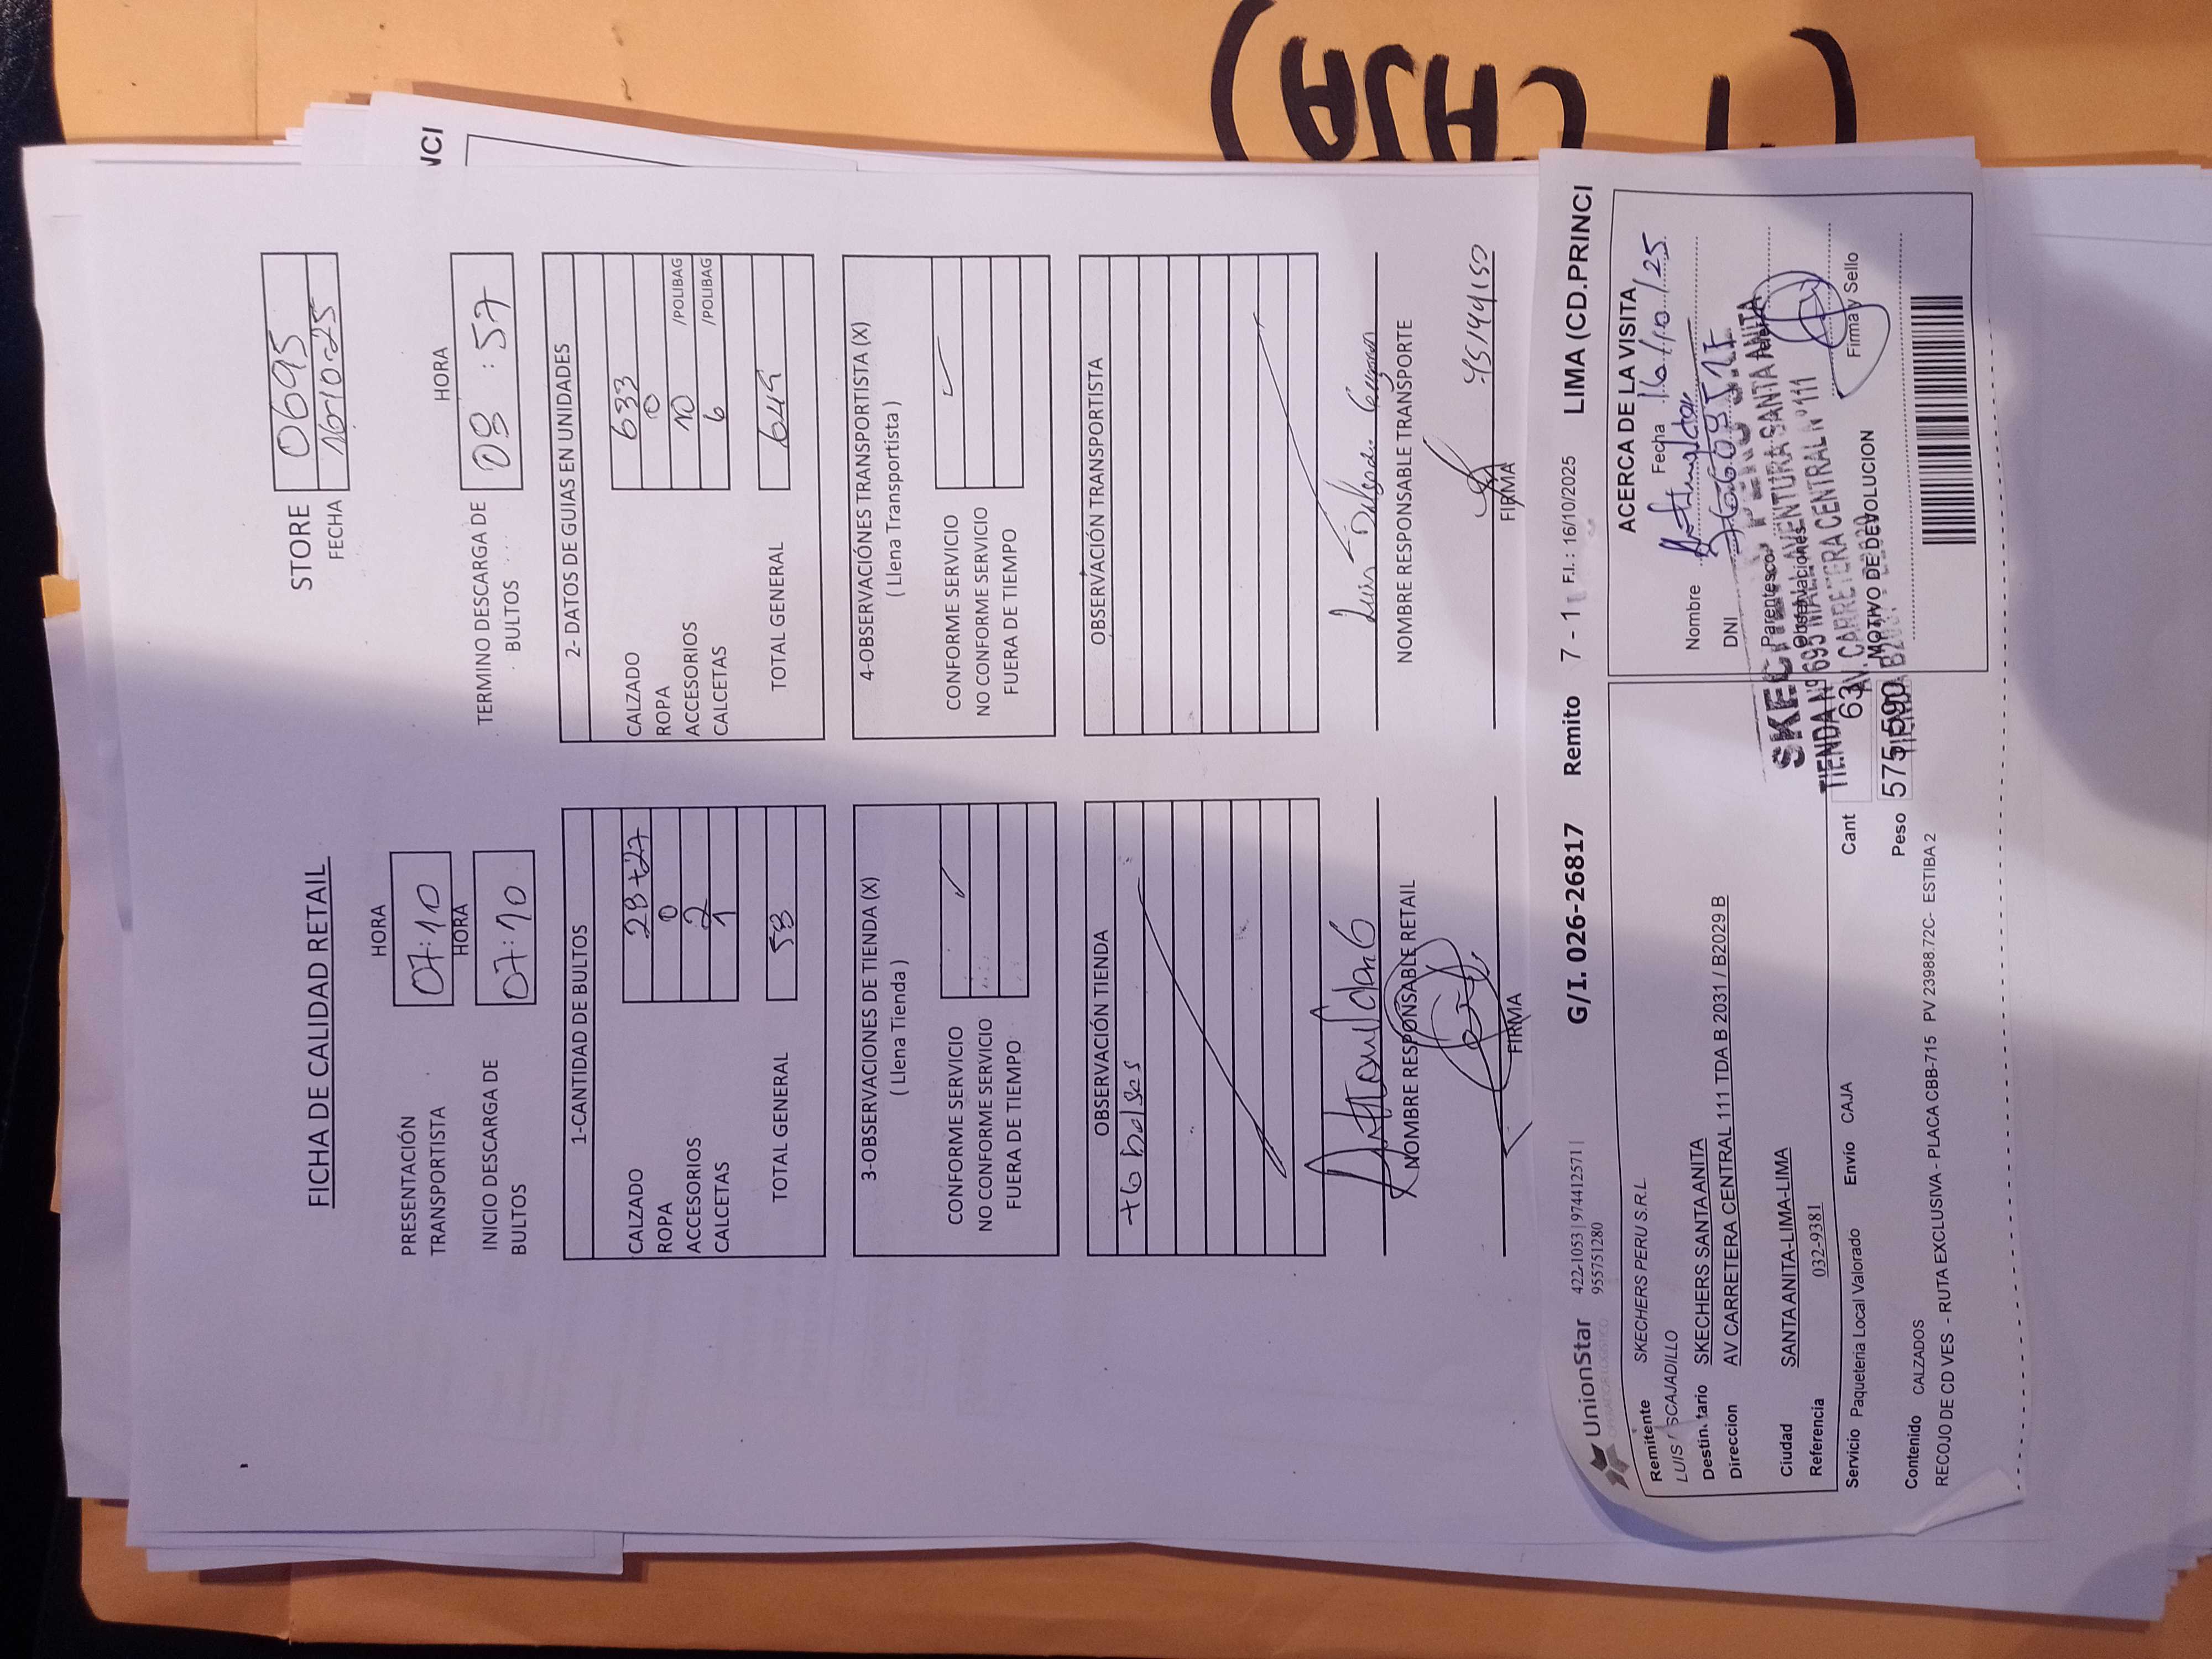 ( 1 CAJA)
NCI
FICHA DE CALIDAD RETAIL
STORE 0695
FECHA 16-10-25
HORA
PRESENTACIÓN TRANSPORTISTA 07:10
HORA
INICIO DESCARGA DE BULTOS 07:10
HORA
TERMINO DESCARGA DE BULTOS 08:57
1-CANTIDAD DE BULTOS
CALZADO 28+27
ROPA 0
ACCESORIOS 2
CALCETAS 1
TOTAL GENERAL 58
2- DATOS DE GUIAS EN UNIDADES
CALZADO 633
ROPA 0
ACCESORIOS 10 /POLIBAG
CALCETAS 6 /POLIBAG
TOTAL GENERAL 649
3-OBSERVACIONES DE TIENDA (X)
( Llena Tienda )
CONFORME SERVICIO ✓
NO CONFORME SERVICIO
FUERA DE TIEMPO
4-OBSERVACIÓNES TRANSPORTISTA (X)
( Llena Transportista )
CONFORME SERVICIO ✓
NO CONFORME SERVICIO
FUERA DE TIEMPO
OBSERVACIÓN TIENDA
+6 bolsas
OBSERVACIÓN TRANSPORTISTA
NOMBRE RESPONSABLE RETAIL
FIRMA
Luis
NOMBRE RESPONSABLE TRANSPORTE
FIRMA
UnionStar
OPERADOR LOGISTICO
422-1053 | 974412571 |
955751280
G/I. 026-26817 Remito 7 - 1 F.I.: 16/10/2025 LIMA (CD.PRINCI
Remitente SKECHERS PERU S.R.L
LUIS SCAJADILLO
Destin. tario SKECHERS SANTA ANITA
Direccion AV CARRETERA CENTRAL 111 TDA B 2031 / B2029 B
Ciudad SANTA ANITA-LIMA-LIMA
Referencia 032-9381
Servicio Paqueteria Local Valorado Envío CAJA Cant 63
Peso 575.590
Contenido CALZADOS
RECOJO DE CD VES - RUTA EXCLUSIVA - PLACA CBB-715 PV 23988.72C- ESTIBA 2
ACERCA DE LA VISITA
Fecha 16/10/25
Nombre
DNI
Parentesco
Observaciones
MOTIVO DE DEVOLUCION
Firma y Sello
SKECHERS PERU S.R.L
TIENDA N° 695 MALL AVENTURA SANTA ANITA
AV. CARRETERA CENTRAL N° 111